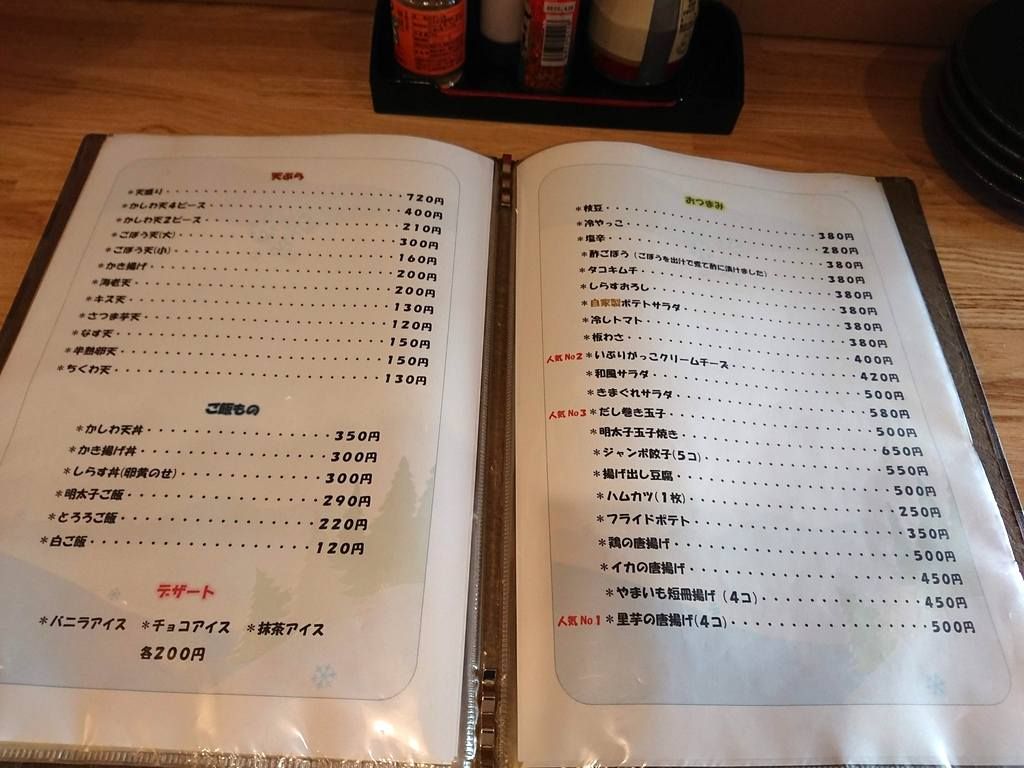 天ぷら
*天盛り・・・・・・・・・・・・・・・・・・720円
*かしわ天4ピース・・・・・・・・・・・・・・400円
*かしわ天2ピース・・・・・・・・・・・・・・210円
*ごぼう天(大)・・・・・・・・・・・・・・・・300円
*ごぼう天(小)・・・・・・・・・・・・・・・・160円
*かき揚げ・・・・・・・・・・・・・・・・・・200円
*海老天・・・・・・・・・・・・・・・・・・・200円
*キス天・・・・・・・・・・・・・・・・・・・130円
*さつま芋天・・・・・・・・・・・・・・・・・120円
*なす天・・・・・・・・・・・・・・・・・・・150円
*半熟卵天・・・・・・・・・・・・・・・・・・150円
*ちくわ天・・・・・・・・・・・・・・・・・・130円
ご飯もの
*かしわ天丼・・・・・・・・・・・・・・350円
*かき揚げ丼・・・・・・・・・・・・・・300円
*しらす丼(卵黄のせ)・・・・・・・・・・300円
*明太子ご飯・・・・・・・・・・・・・・290円
*とろろご飯・・・・・・・・・・・・・・220円
*白ご飯・・・・・・・・・・・・・・・・120円
デザート
*バニラアイス *チョコアイス *抹茶アイス
各200円
おつまみ
*枝豆・・・・・・・・・・・・・・・・・・380円
*冷やっこ・・・・・・・・・・・・・・・・280円
*塩辛・・・・・・・・・・・・・・・・・・380円
*酢ごぼう(ごぼうを出汁で煮て酢に漬けました)380円
*タコキムチ・・・・・・・・・・・・・・・380円
*しらすおろし・・・・・・・・・・・・・・380円
*自家製ポテトサラダ・・・・・・・・・・・380円
*冷しトマト・・・・・・・・・・・・・・・380円
*板わさ・・・・・・・・・・・・・・・・・400円
人気No2 *いぶりがっこクリームチーズ・・・・・・・420円
*和風サラダ・・・・・・・・・・・・・・・500円
*きまぐれサラダ・・・・・・・・・・・・・580円
人気No3 *だし巻き玉子・・・・・・・・・・・・・・500円
*明太子玉子焼き・・・・・・・・・・・・・650円
*ジャンボ餃子(5コ)・・・・・・・・・・・・550円
*揚げ出し豆腐・・・・・・・・・・・・・・500円
*ハムカツ(1枚)・・・・・・・・・・・・・・250円
*フライドポテト・・・・・・・・・・・・・350円
*鶏の唐揚げ・・・・・・・・・・・・・・・500円
*イカの唐揚げ・・・・・・・・・・・・・・450円
*やまいも短冊揚げ(4コ)・・・・・・・・・・450円
人気No1 *里芋の唐揚げ(4コ)・・・・・・・・・・・・500円